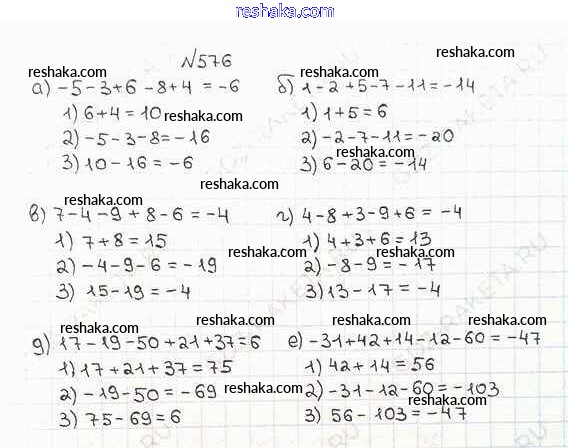 reshaka.com
№576
reshaka.com reshaka.com
а) -5-3+6-8+4 = -6
1) 6+4=10 reshaka.com
2) -5-3-8=-16
3) 10-16=-6
б) 1-2+5-7-11=-14
reshaka.com
1) 1+5=6
2) -2-7-11=-20
reshaka.com
3) 6-20=-14
reshaka.com
reshaka.com
в) 7-4-9+8-6=-4
1) 7+8=15
2) -4-9-6=-19
reshaka.com
3) 15-19=-4
г) 4-8+3-9+6= -4
reshaka.com
1) 4+3+6=13
2) -8-9=-17
reshaka.com
3) 13-17=-4
reshaka.com reshaka.com reshaka.com
д) 17-19-50+21+37=6
1) 17+21+37=75
2) -19-50=-69
3) 75-69=6
reshaka.com
е) -31+42+14-12-60=-47
1) 42+14=56
reshaka.com
2) -31-12-60=-103
3) 56-103=-47
reshaka.com
reshaka.com